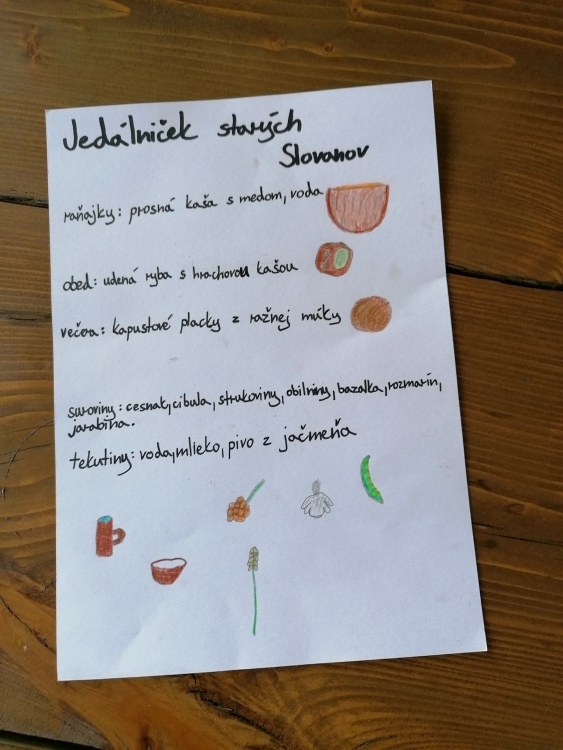 Jedálniček starých
Slovanov
raňajky: prosná kaša s medom, voda
obed: udená ryba s hrachovou kašou
večera: kapustové placky z ražnej múky
suroviny: cesnak, cibula, strukoviny, obilniny, bazalka, rozmarín,
jarabina.
tekutiny: voda, mlieko, pivo z jačmeňa